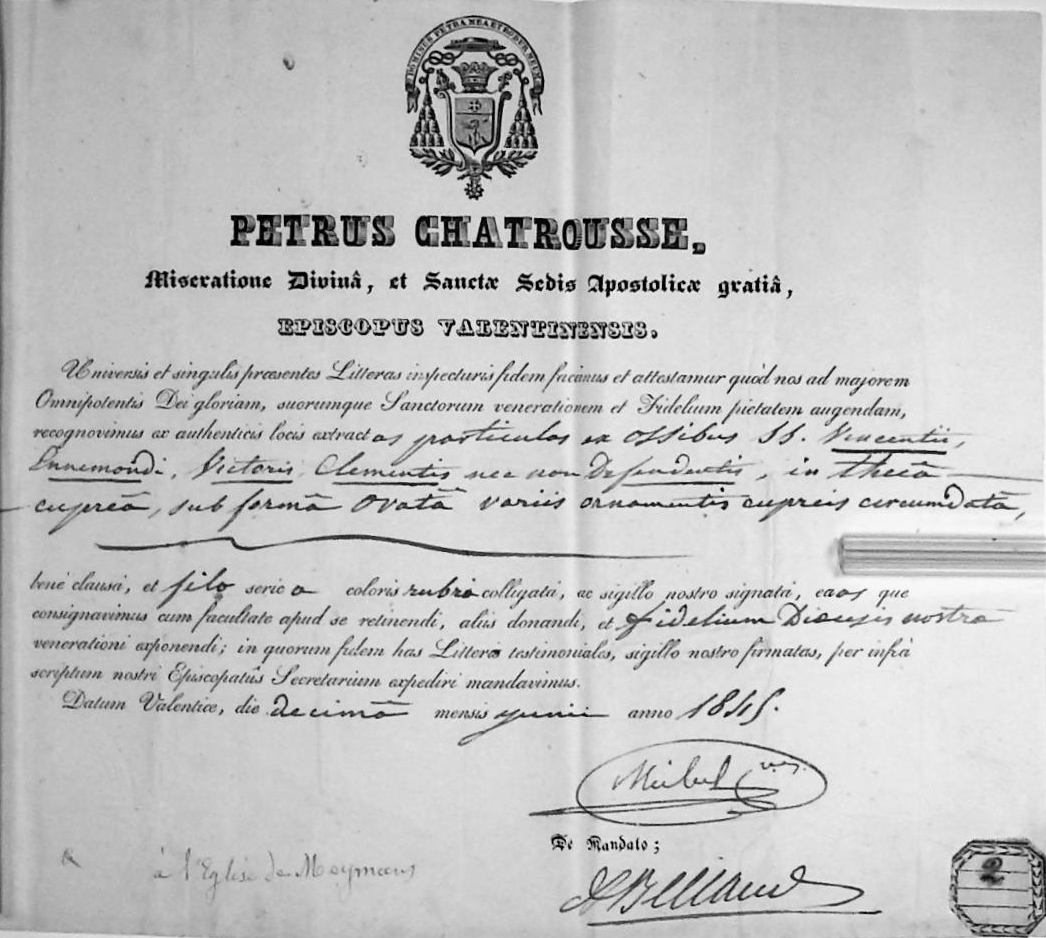 DOMINUS PETRA MEA ET ROBUR MEUM
PETRUS CHATROUSSE,
Miseratione Divinâ, et Sanctæ Sedis Apostolicæ gratiâ,
EPISCOPUS VALENTINENSIS.
Universis et singulis præsentes Litteras inspecturis fidem facimus et attestamur quòd nos ad majorem
Omnipotentis Dei gloriam, suorumque Sanctorum venerationem et Fidelium pietatem augendam,
recognovimus ex authenticis locis extractas particulas ex ossibus SS. Vincentii,
Ennemondi, Victoris, Clementis nec non Defendentis, in thecâ
cupreâ, sub formâ ovatâ variis ornamentis cupreis circumdata,
benè clausâ, et filo serico coloris rubri colligatâ, ac sigillo nostro signatâ, easque
consignavimus cum facultate apud se retinendi, aliis donandi, et fidelium Diœcesis nostræ
venerationi exponendi; in quorum fidem has Litteras testimoniales, sigillo nostro firmatas, per infrà
scriptum nostri Episcopatûs Secretarium expediri mandavimus.
Datum Valentiæ, die decimâ mensis junii anno 1845.
De Mandato;
à l'Eglise de Meymans
2